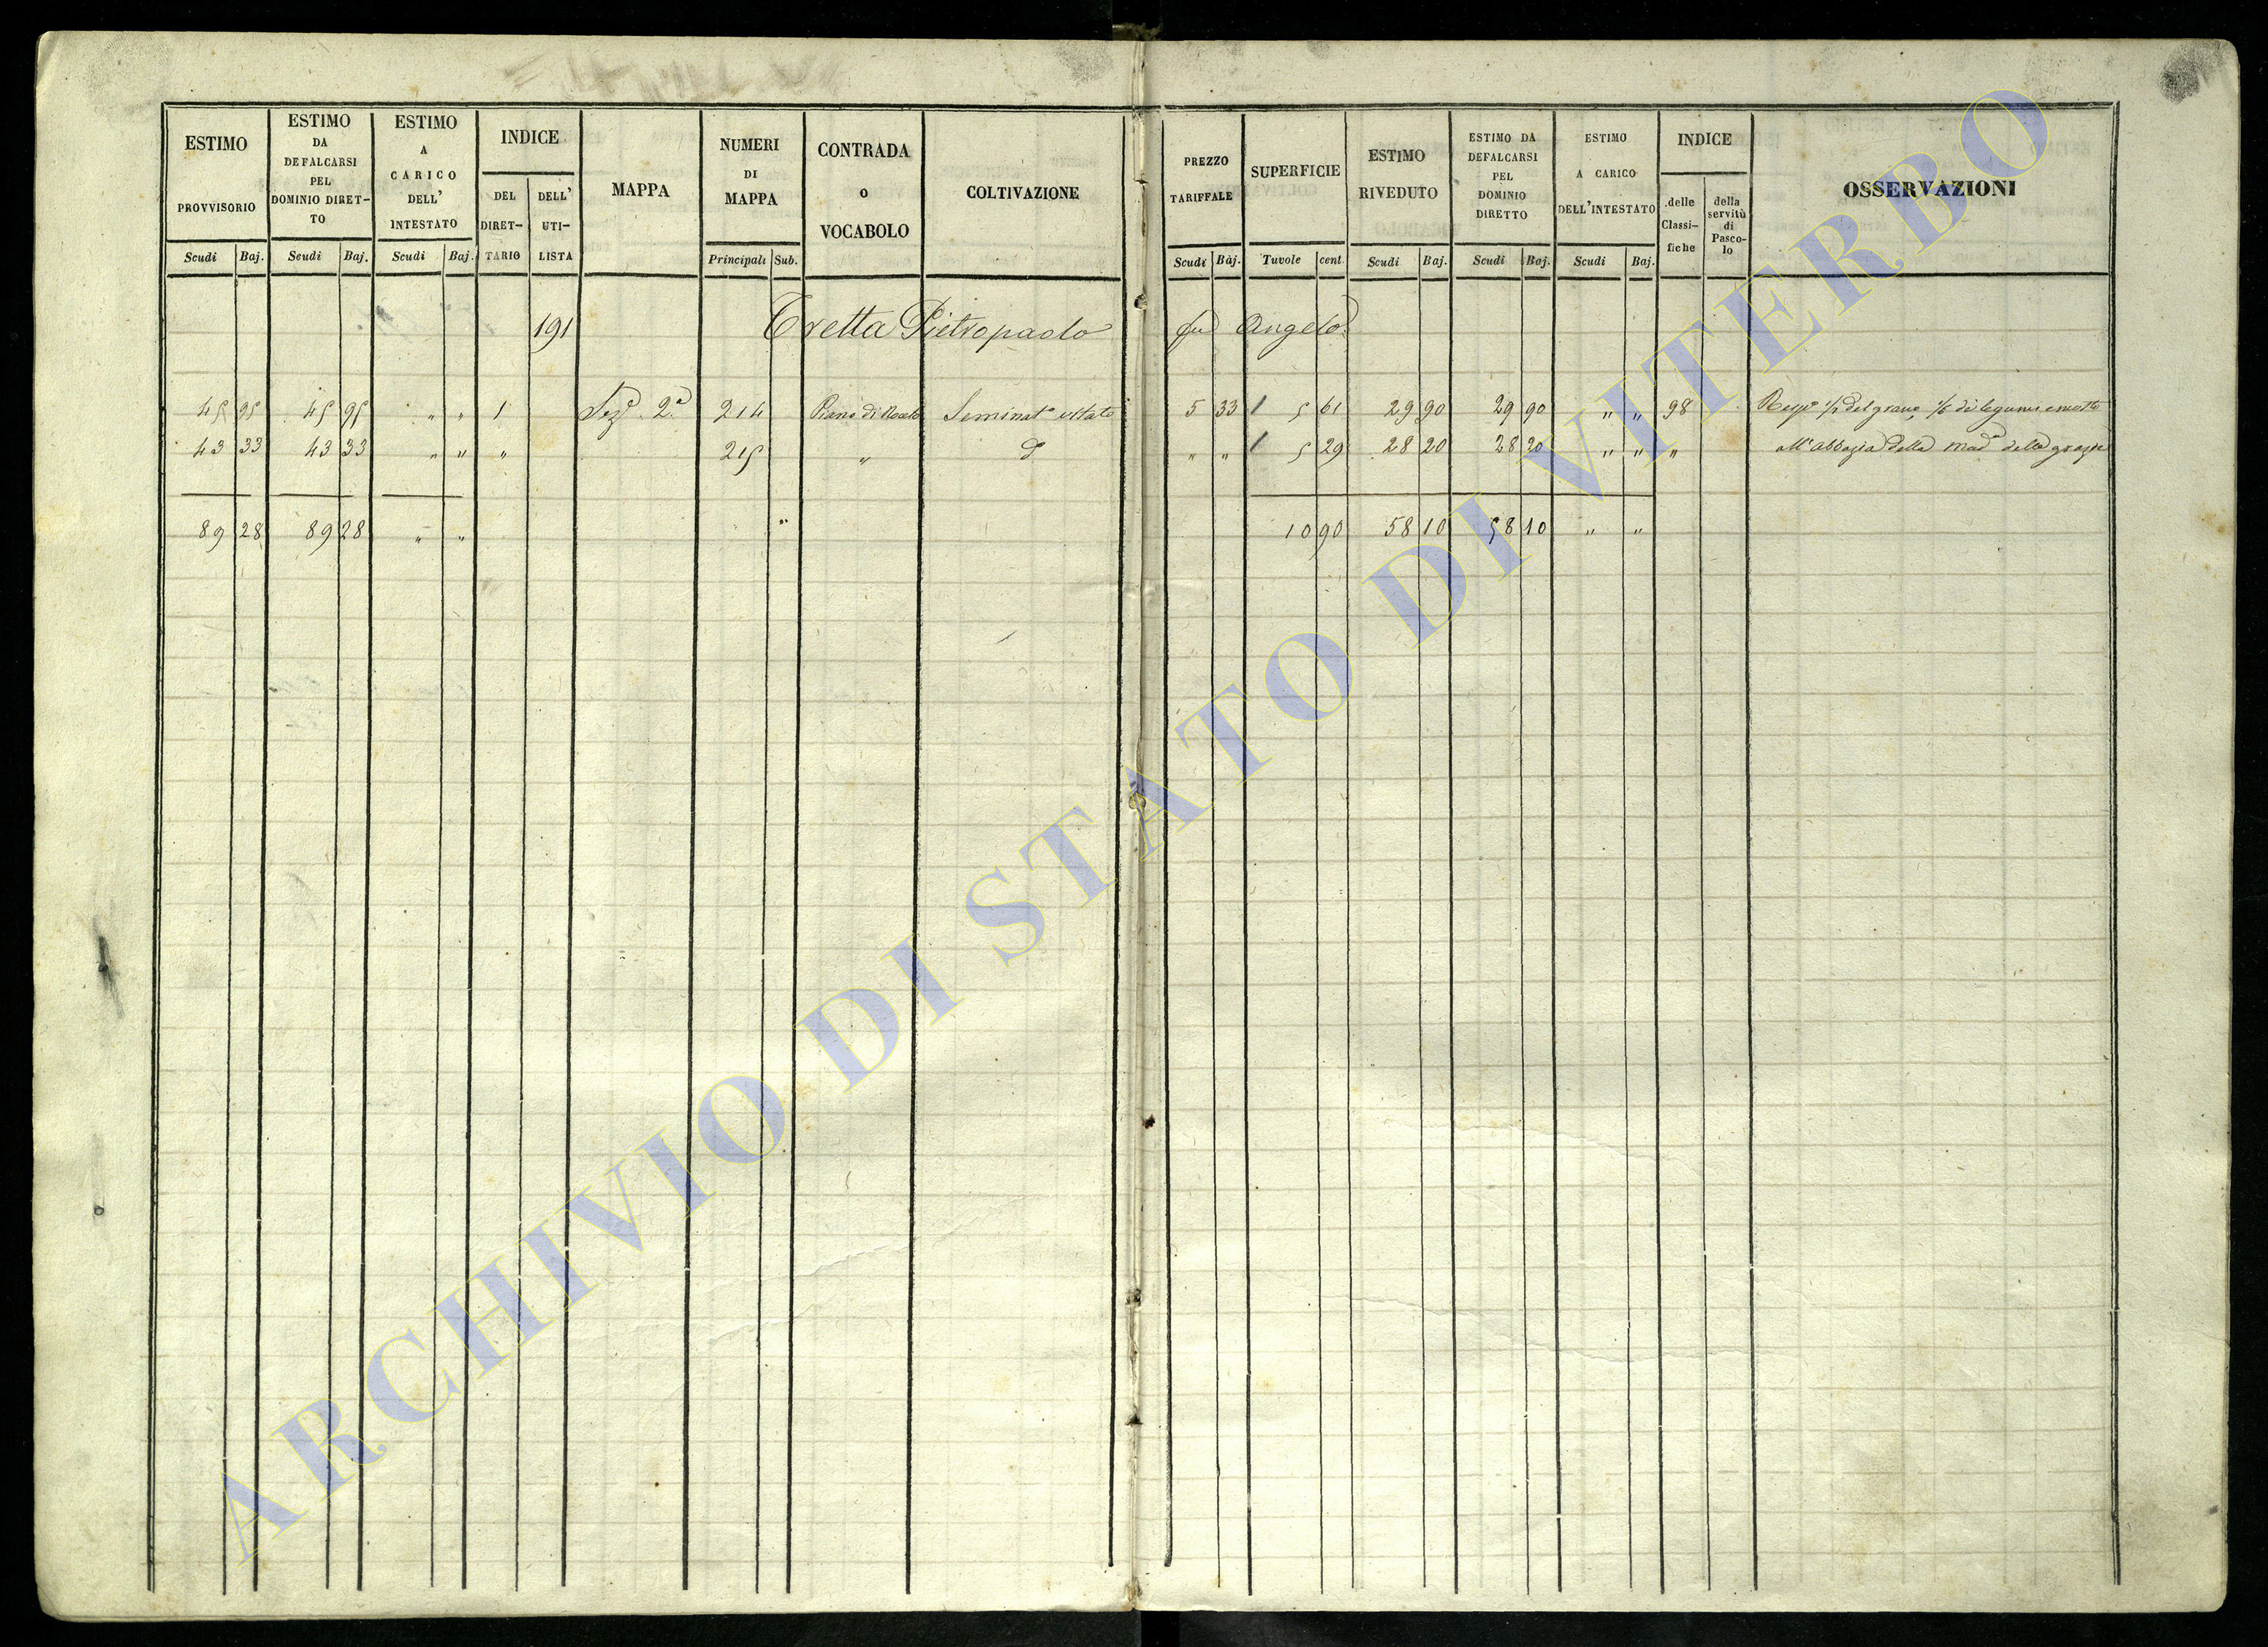 ESTIMO PROVVISORIO
Scudi Baj.
ESTIMO DA DEFALCARSI PEL DOMINIO DIRET-TO
Scudi Baj.
ESTIMO A CARICO DELL' INTESTATO
Scudi Baj.
INDICE
DEL DIRET-TARIO
DELL' UTI-LISTA
MAPPA
NUMERI DI MAPPA
Principali Sub.
CONTRADA O VOCABOLO
COLTIVAZIONE
PREZZO TARIFFALE
Scudi Baj.
SUPERFICIE
Tavole cent.
ESTIMO RIVEDUTO
Scudi Baj.
ESTIMO DA DEFALCARSI PEL DOMINIO DIRETTO
Scudi Baj.
ESTIMO A CARICO DELL'INTESTATO
Scudi Baj.
INDICE
delle Classi-fiche
della servitù di Pasco-lo
OSSERVAZIONI
191 Tretta Pietropaolo fu Angelo
45 95 45 95 " " 1 Sez. 2a 214 Piano di Seminat 5 33 1 5 61 29 90 29 90 " " 98 1/5 del grano, 1/6 di legumi
43 33 43 33 " " " 215 " d 1 " " 5 29 28 20 28 20 " " " all'abbazia della Mada delle grazie
89 28 89 28 " " " 10 90 58 10 58 10 " "
ARCHIVIO DI STATO DI VITERBO